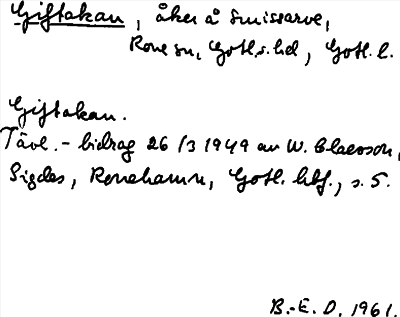 Giftakan, åker å Smissarve,
Rone sn, Gotl. s. hd, Gotl. l.
Giftakan.
Tävl.-bidrag 26/3 1949 av W. Claesson,
Sigdes, Ronehamn, Gotl. hbf., s. 5.
B.-E. D. 1961.